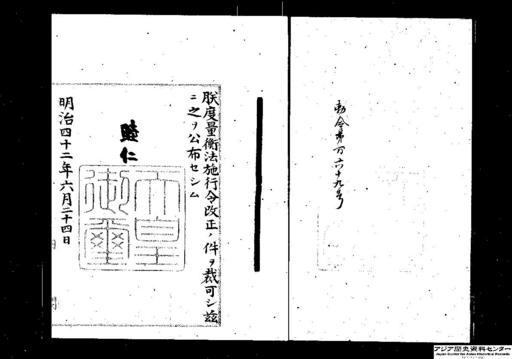 勅令第百六十九号
朕度量衡法施行令改正ノ件ヲ裁可シ茲
ニ之ヲ公布セシム
睦仁
天皇
御璽
明治四十二年六月二十四日
アジア歴史資料センター
Japan Center for Asian Historical Records